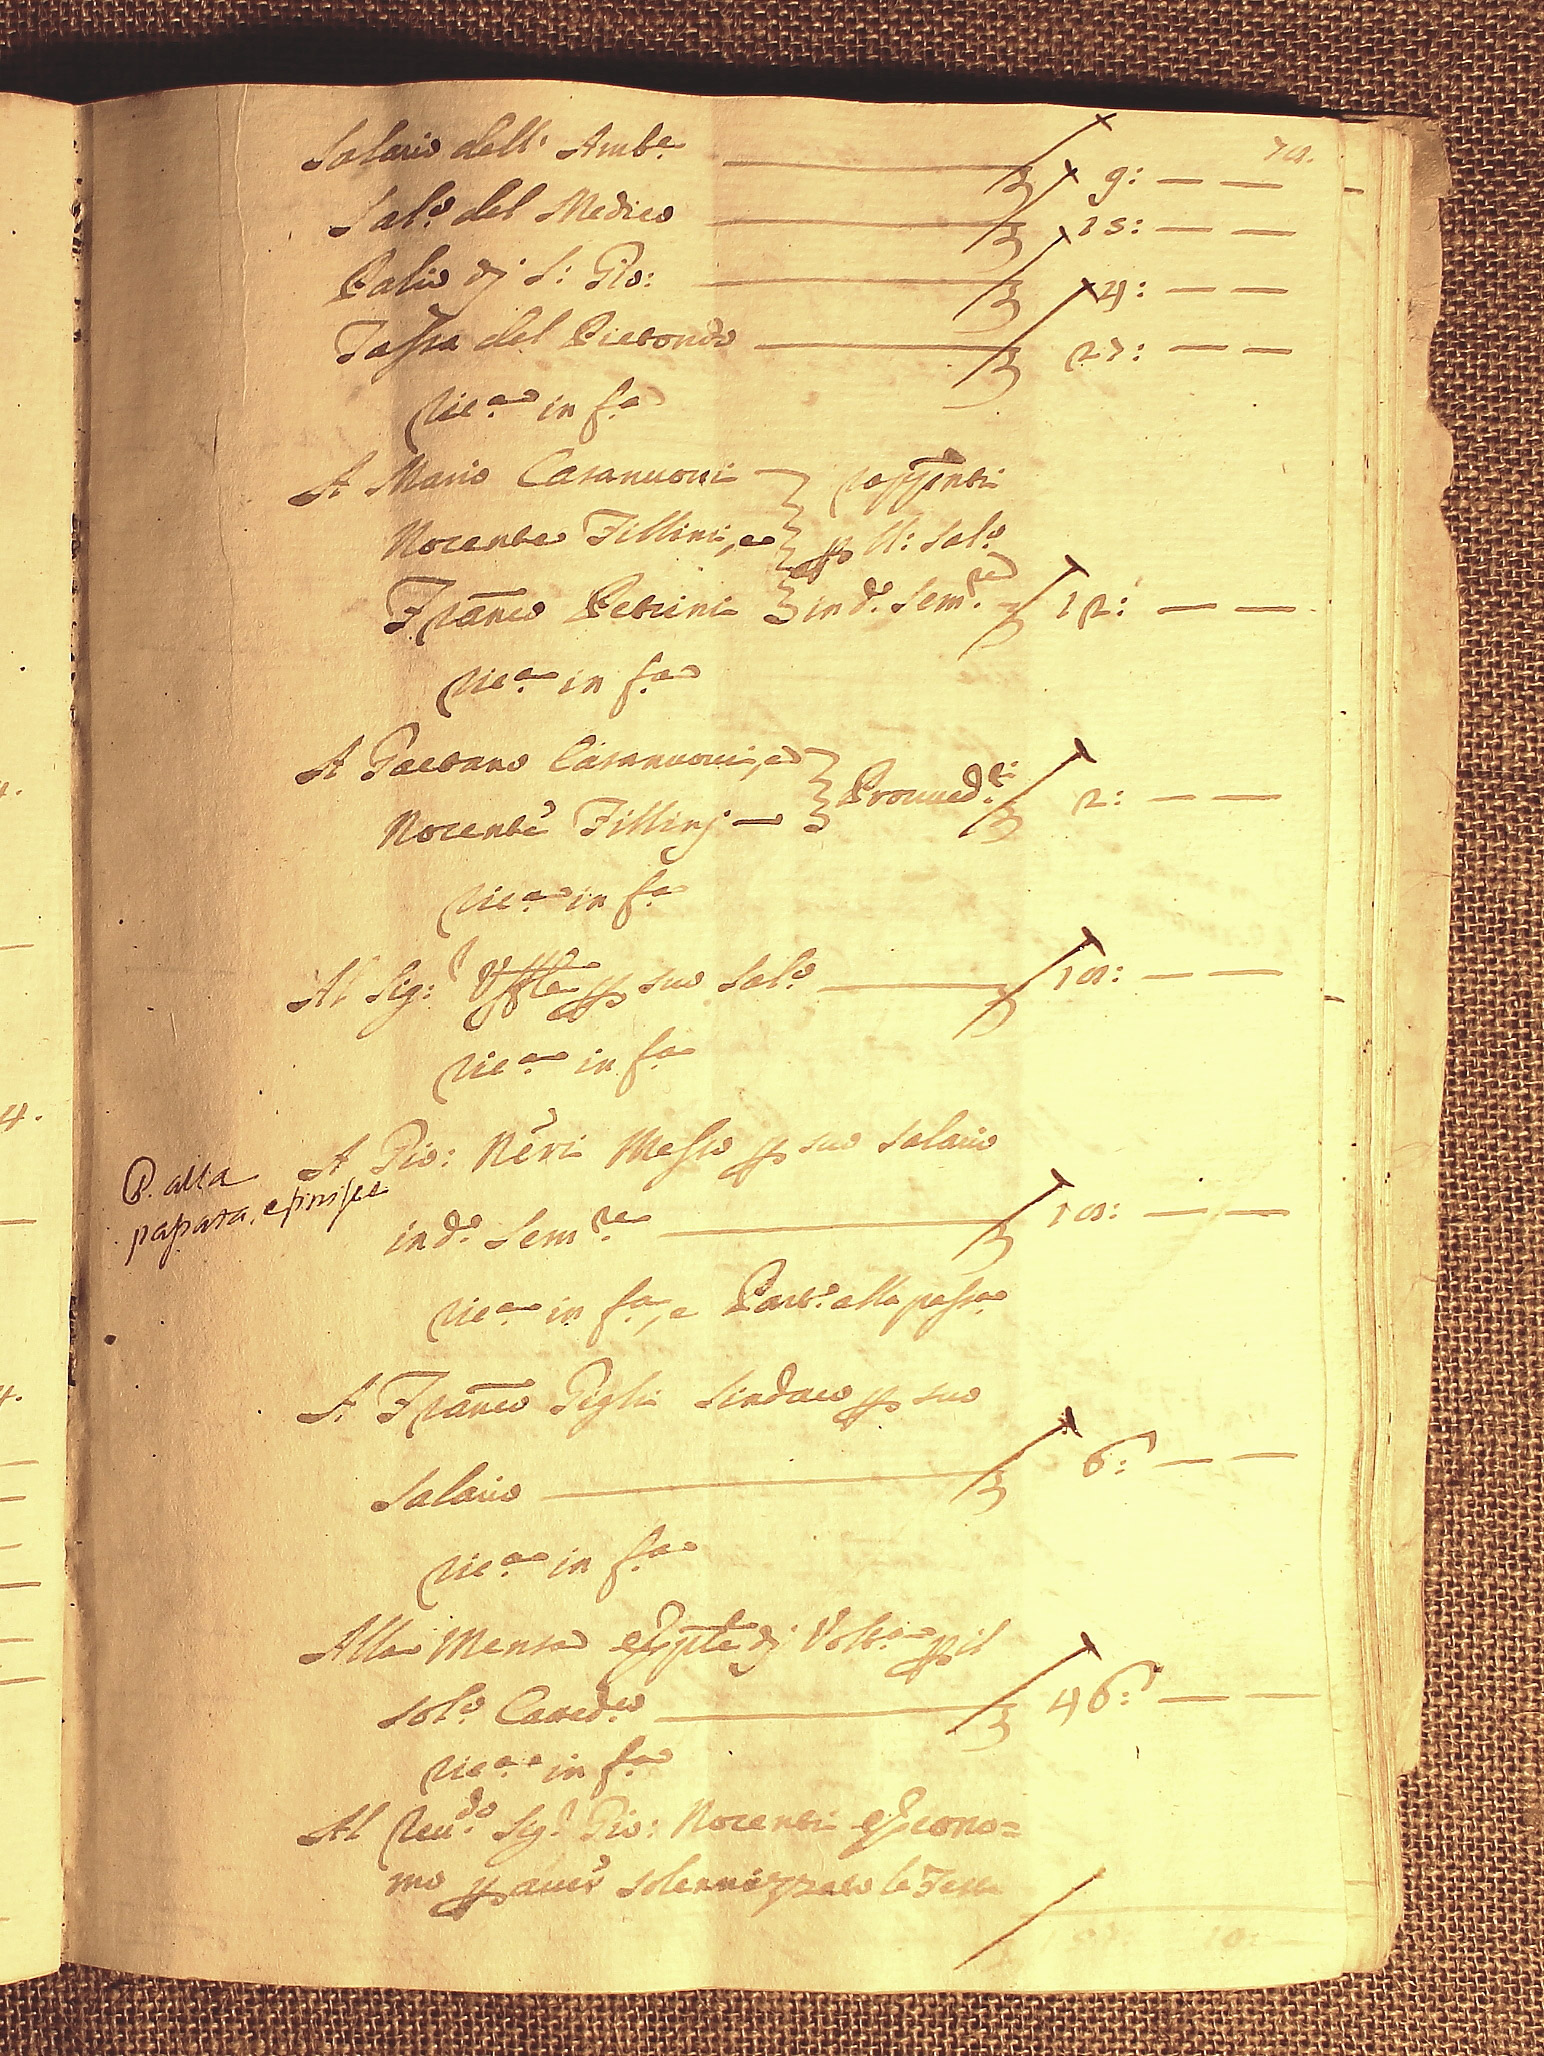 70.
Salario dell' Ambre ₰ 9: — —
Sal.o del Medico ₰ 15: — —
Palio dj S: Gio: ₰ 4: — —
Tassa del Pierondo ₰ 27: — —
Ric.a in f.a
A Mario Casanuovi
Nocente Fillini, e
Franco Petrini
rappnti
p il: Sal.o
in d.o Sem.re ₰ 12: — —
Ric.a in f.a
A Gaetano Casanuovi, e
Nocente Fillinj —
Proued.ri ₰ 2: — —
Ric.a in f.a
Al Sig:r Uffle p suo Sal.o ₰ 10: — —
Ric.a in f.a
P. alla
A Gio: Neri Messo p suo Salario
in d.o Sem.re ₰ 10: — —
Ric.a in f.a, e Part.o alla
A Franco Gigli Sindaco p suo
Salario ₰ 6: — —
Ric.a in f.a
Alla Mensa di Volt.a p il
Sol.o ₰ 46: — —
Ric.a in f.a
Al Reu.do Sig.r Gio: Nocenti Econo=
mo p auer solennizzato le Feste
10: —